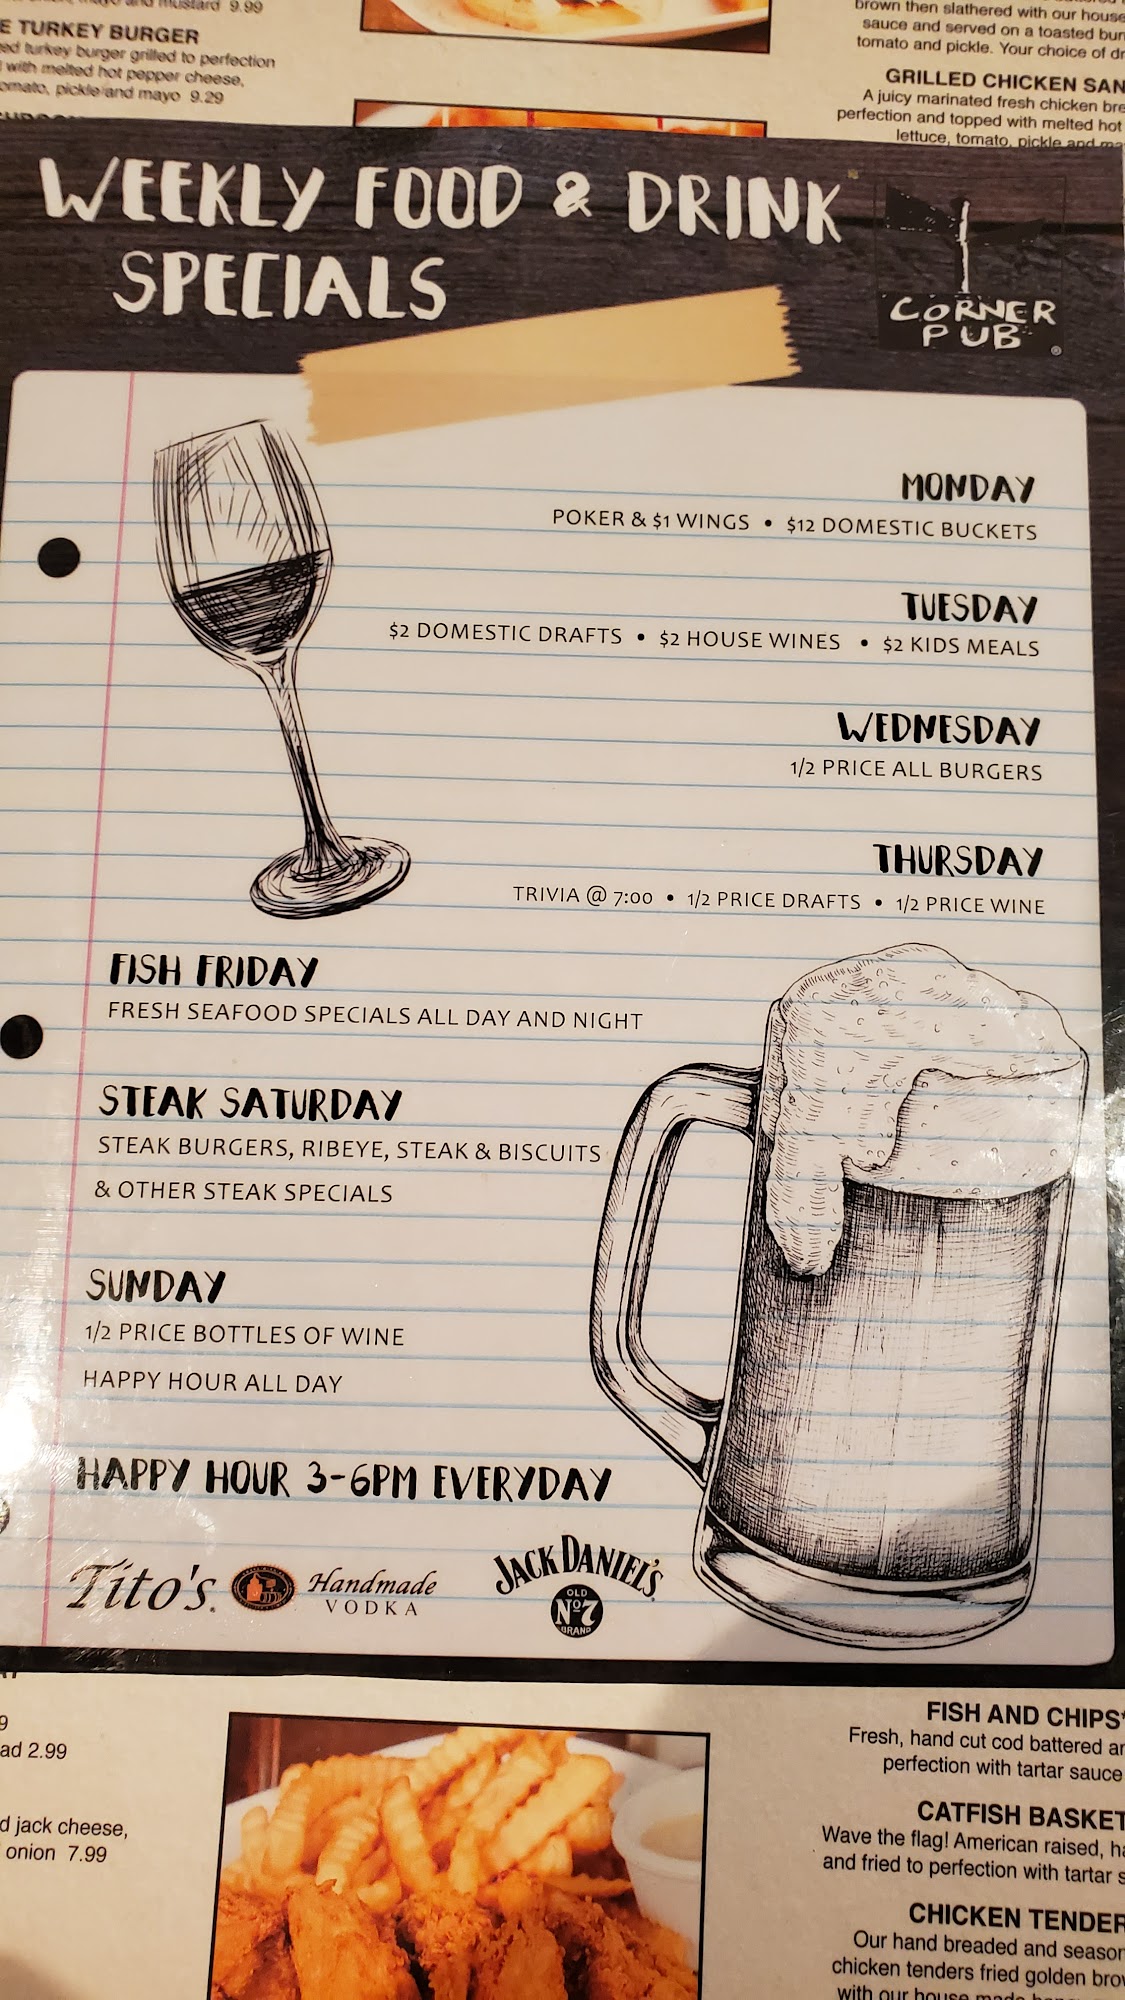 and mustard 9.99
TURKEY BURGER
turkey burger grilled to perfection
with melted hot pepper cheese,
tomato, pickle and mayo 9.29
brown then slathered with our house
sauce and served on a toasted bun
tomato and pickle. Your choice of
GRILLED CHICKEN
A juicy marinated fresh chicken
perfection and topped with melted hot
lettuce, tomato, pickle and
WEEKLY FOOD & DRINK
SPECIALS
CORNER
PUB®
MONDAY
POKER & $1 WINGS • $12 DOMESTIC BUCKETS
TUESDAY
$2 DOMESTIC DRAFTS • $2 HOUSE WINES • $2 KIDS MEALS
WEDNESDAY
1/2 PRICE ALL BURGERS
THURSDAY
TRIVIA @ 7:00 • 1/2 PRICE DRAFTS • 1/2 PRICE WINE
FISH FRIDAY
FRESH SEAFOOD SPECIALS ALL DAY AND NIGHT
STEAK SATURDAY
STEAK BURGERS, RIBEYE, STEAK & BISCUITS
& OTHER STEAK SPECIALS
SUNDAY
1/2 PRICE BOTTLES OF WINE
HAPPY HOUR ALL DAY
HAPPY HOUR 3-6PM EVERYDAY
Tito's. Handmade
VODKA
JACK DANIEL'S
OLD
No 7
BRAND
9
ad 2.99
d jack cheese,
onion 7.99
FISH AND CHIPS*
Fresh, hand cut cod battered
perfection with tartar sauce
CATFISH BASKET
Wave the flag! American raised,
and fried to perfection with tartar
CHICKEN TENDER
Our hand breaded and
chicken tenders fried golden
with our house made